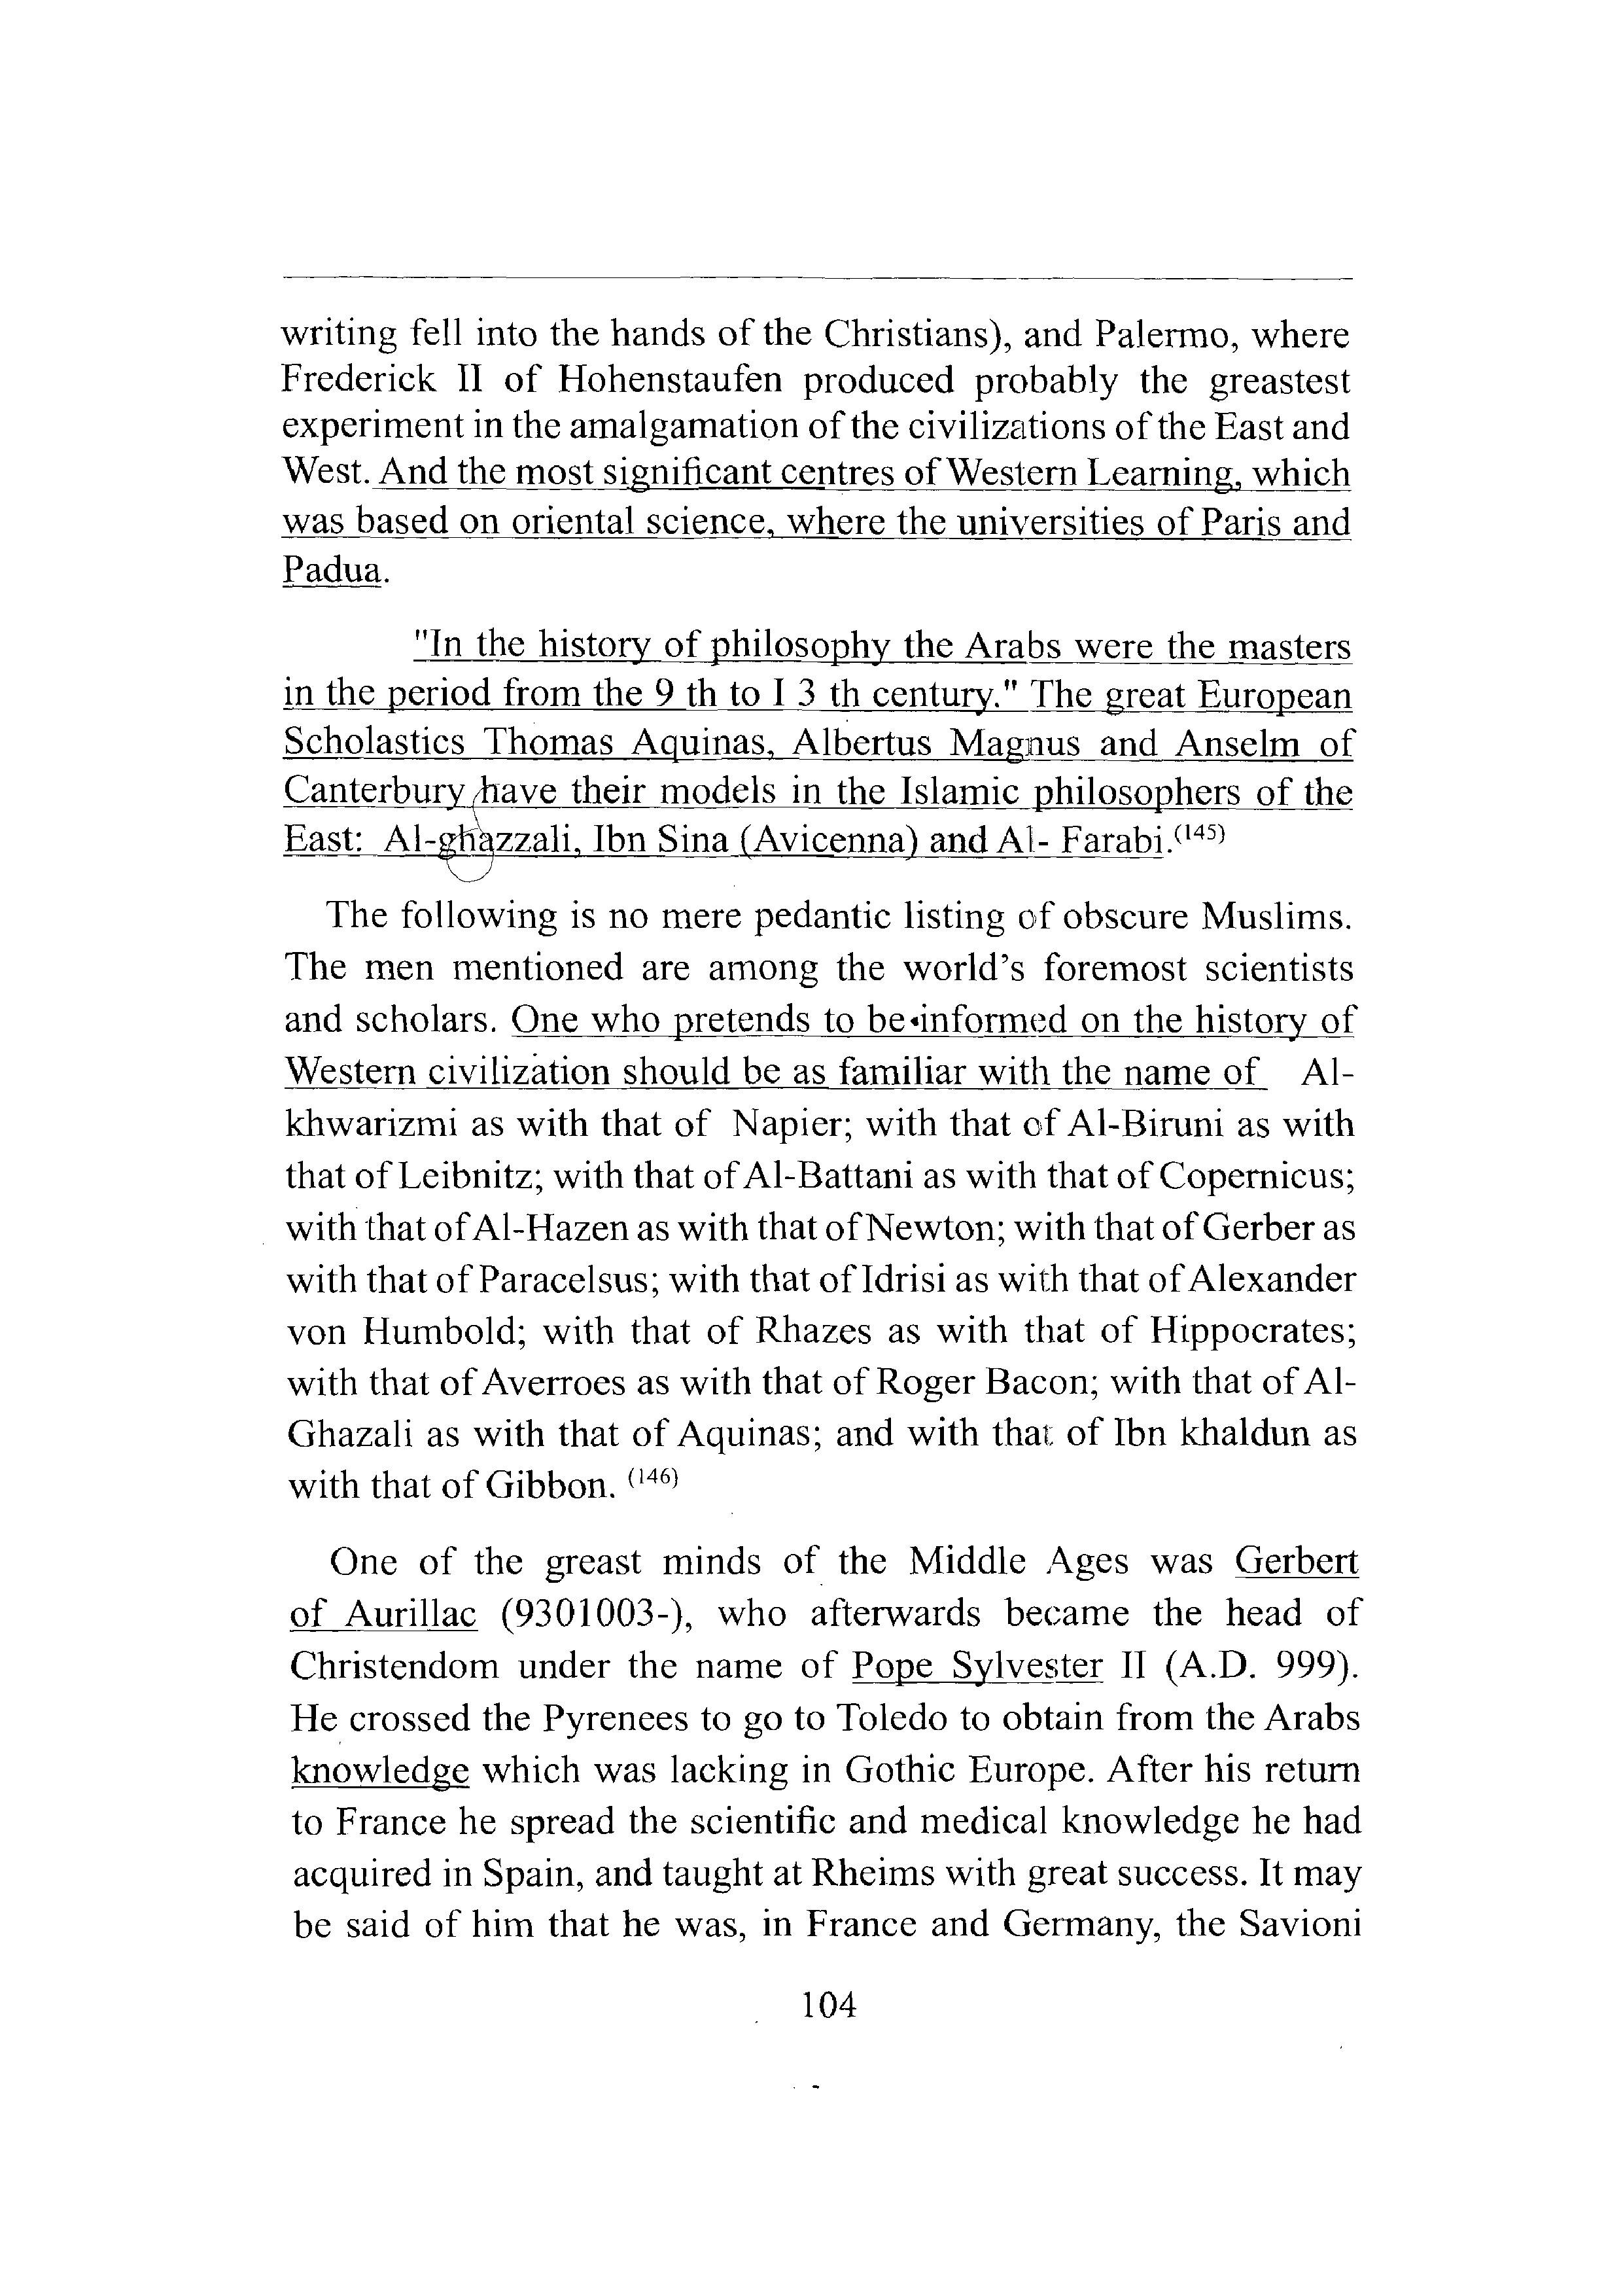 writing fell into the hands of the Christians), and Palermo, where
Frederick II of Hohenstaufen produced probably the greastest
experiment in the amalgamation of the civilizations of the East and
West. And the most significant centres of Western Learning, which
was based on oriental science, where the universities of Paris and
Padua.
"In the history of philosophy the Arabs were the masters
in the period from the 9 th to I 3 th century." The great European
Scholastics Thomas Aquinas, Albertus Magnus and Anselm of
Canterbury have their models in the Islamic philosophers of the
East: Al-ghazzali, Ibn Sina (Avicenna) and Al- Farabi.(145)
The following is no mere pedantic listing of obscure Muslims.
The men mentioned are among the world's foremost scientists
and scholars. One who pretends to be informed on the history of
Western civilization should be as familiar with the name of Al-
khwarizmi as with that of Napier; with that of Al-Biruni as with
that of Leibnitz; with that of Al-Battani as with that of Copernicus;
with that of Al-Hazen as with that of Newton; with that of Gerber as
with that of Paracelsus; with that of Idrisi as with that of Alexander
von Humbold; with that of Rhazes as with that of Hippocrates;
with that of Averroes as with that of Roger Bacon; with that of Al-
Ghazali as with that of Aquinas; and with that of Ibn khaldun as
with that of Gibbon. (146)
One of the greast minds of the Middle Ages was Gerbert
of Aurillac (9301003-), who afterwards became the head of
Christendom under the name of Pope Sylvester II (A.D. 999).
He crossed the Pyrenees to go to Toledo to obtain from the Arabs
knowledge which was lacking in Gothic Europe. After his return
to France he spread the scientific and medical knowledge he had
acquired in Spain, and taught at Rheims with great success. It may
be said of him that he was, in France and Germany, the Savioni
104